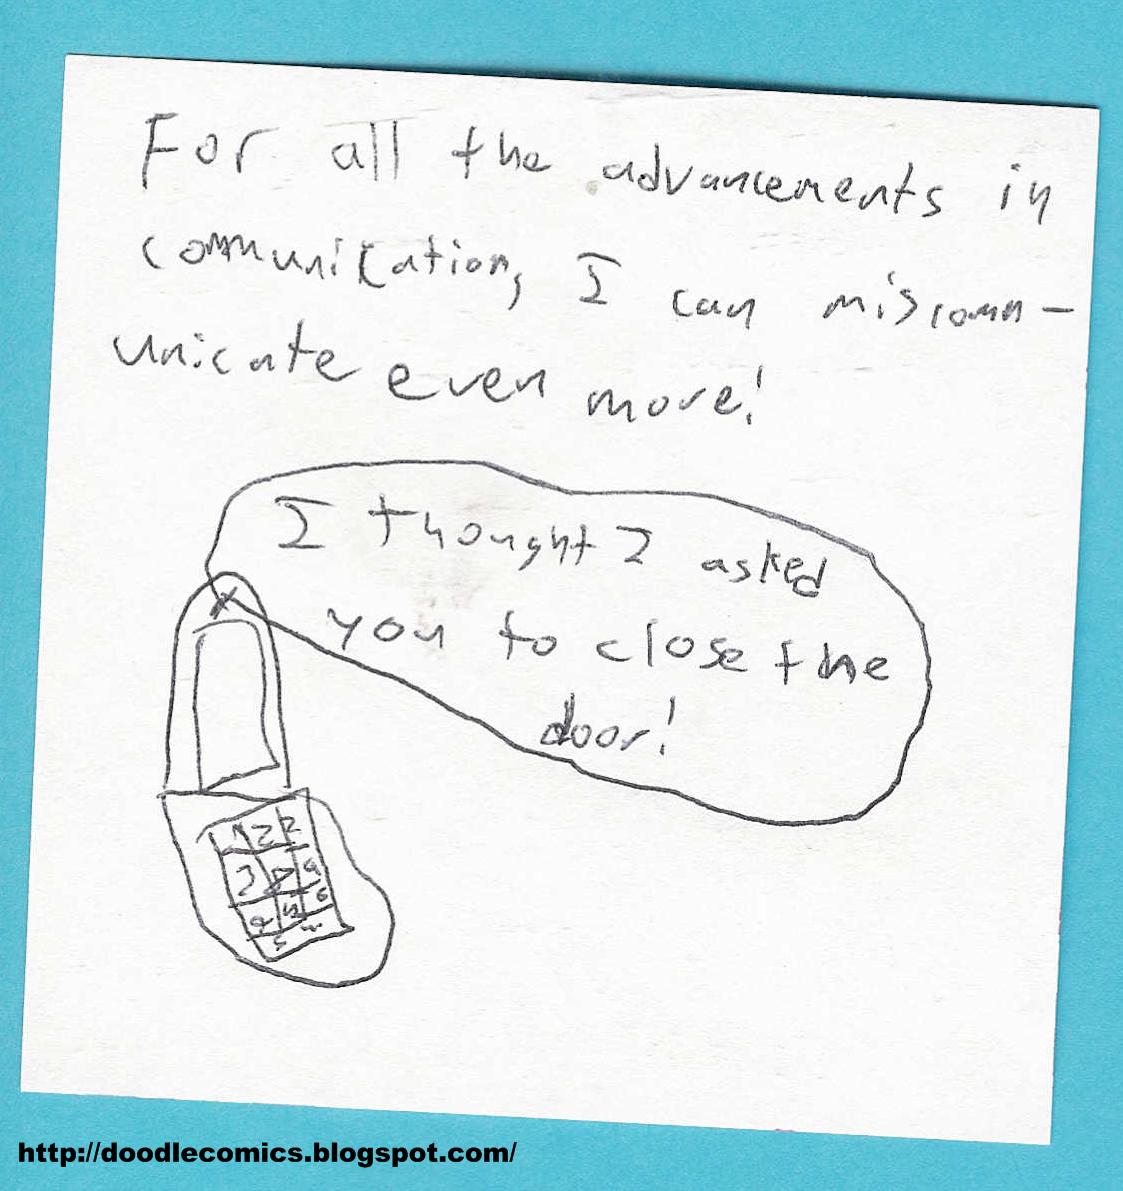 For all the advancements in
communication, I can miscomm-
unicate even more!
I thought I asked
you to close the
door!
http://doodlecomics.blogspot.com/